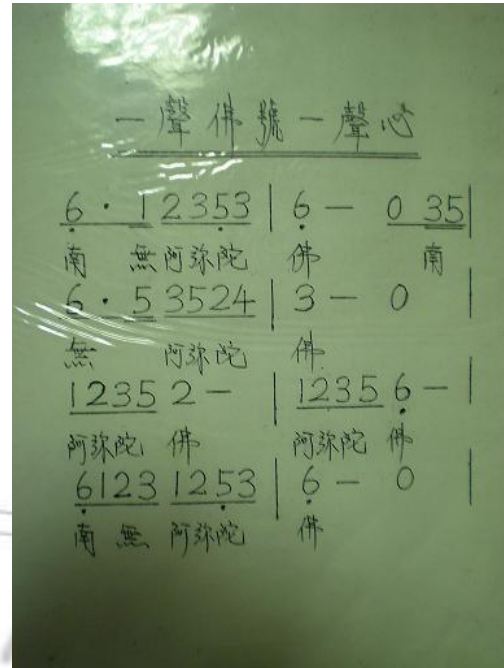 一聲佛號一聲心
6̣ · 1 2353 | 6̣ — 0 35 |
南 無阿弥陀 佛 南
6 · 5 3524 | 3 — 0 |
無 阿弥陀 佛
1235 2 — | 1235 6̣ — |
阿弥陀 佛 阿弥陀 佛
6̣123 125̣3 | 6̣ — 0 |
南 無 阿弥陀 佛